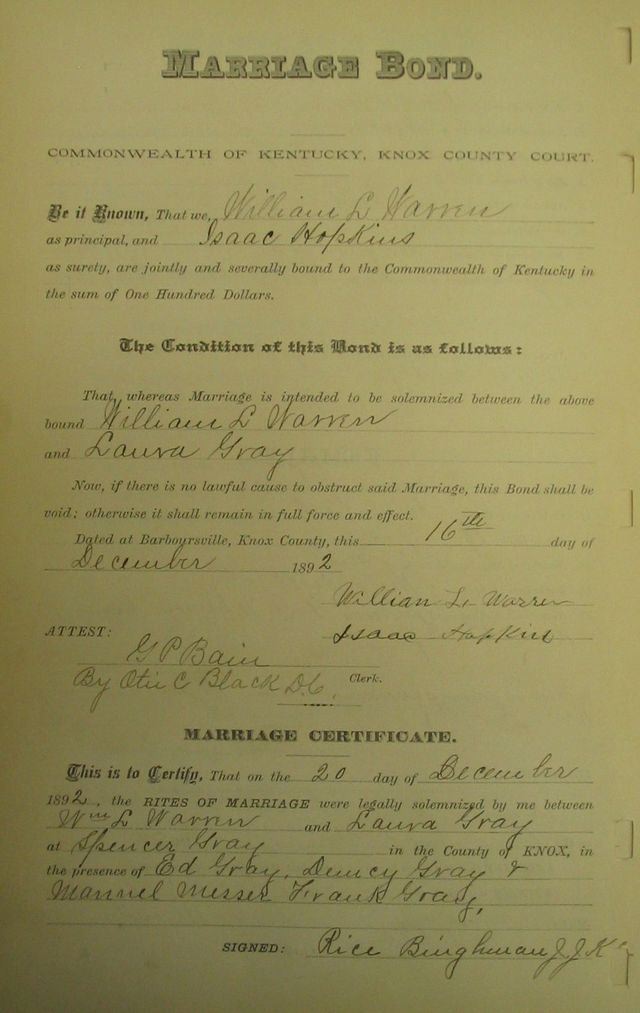 MARRIAGE BOND.
COMMONWEALTH OF KENTUCKY, KNOX COUNTY COURT.
Be it Known, That we, William L Warren
as principal, and Isaac Hopkins
as surety, are jointly and severally bound to the Commonwealth of Kentucky in
the sum of One Hundred Dollars.
The Condition of this Bond is as follows:
That, whereas Marriage is intended to be solemnized between the above
bound William L Warren
and Laura Gray
Now, if there is no lawful cause to obstruct said Marriage, this Bond shall be
void; otherwise it shall remain in full force and effect.
Dated at Barboursville, Knox County, this 16th day of
December 1892
William L. Warren
ATTEST: Isaac Hopkins
G P Bain
By Otis C Black D.C. Clerk.
MARRIAGE CERTIFICATE.
This is to Certify, That on the 20 day of December
1892, the RITES OF MARRIAGE were legally solemnized by me between
Wm L Warren and Laura Gray
at Spencer Gray in the County of KNOX, in
the presence of Ed Gray, Demcy Gray &
Manuel Messer Frank Gray,
SIGNED: Rice Binghman J.J.K